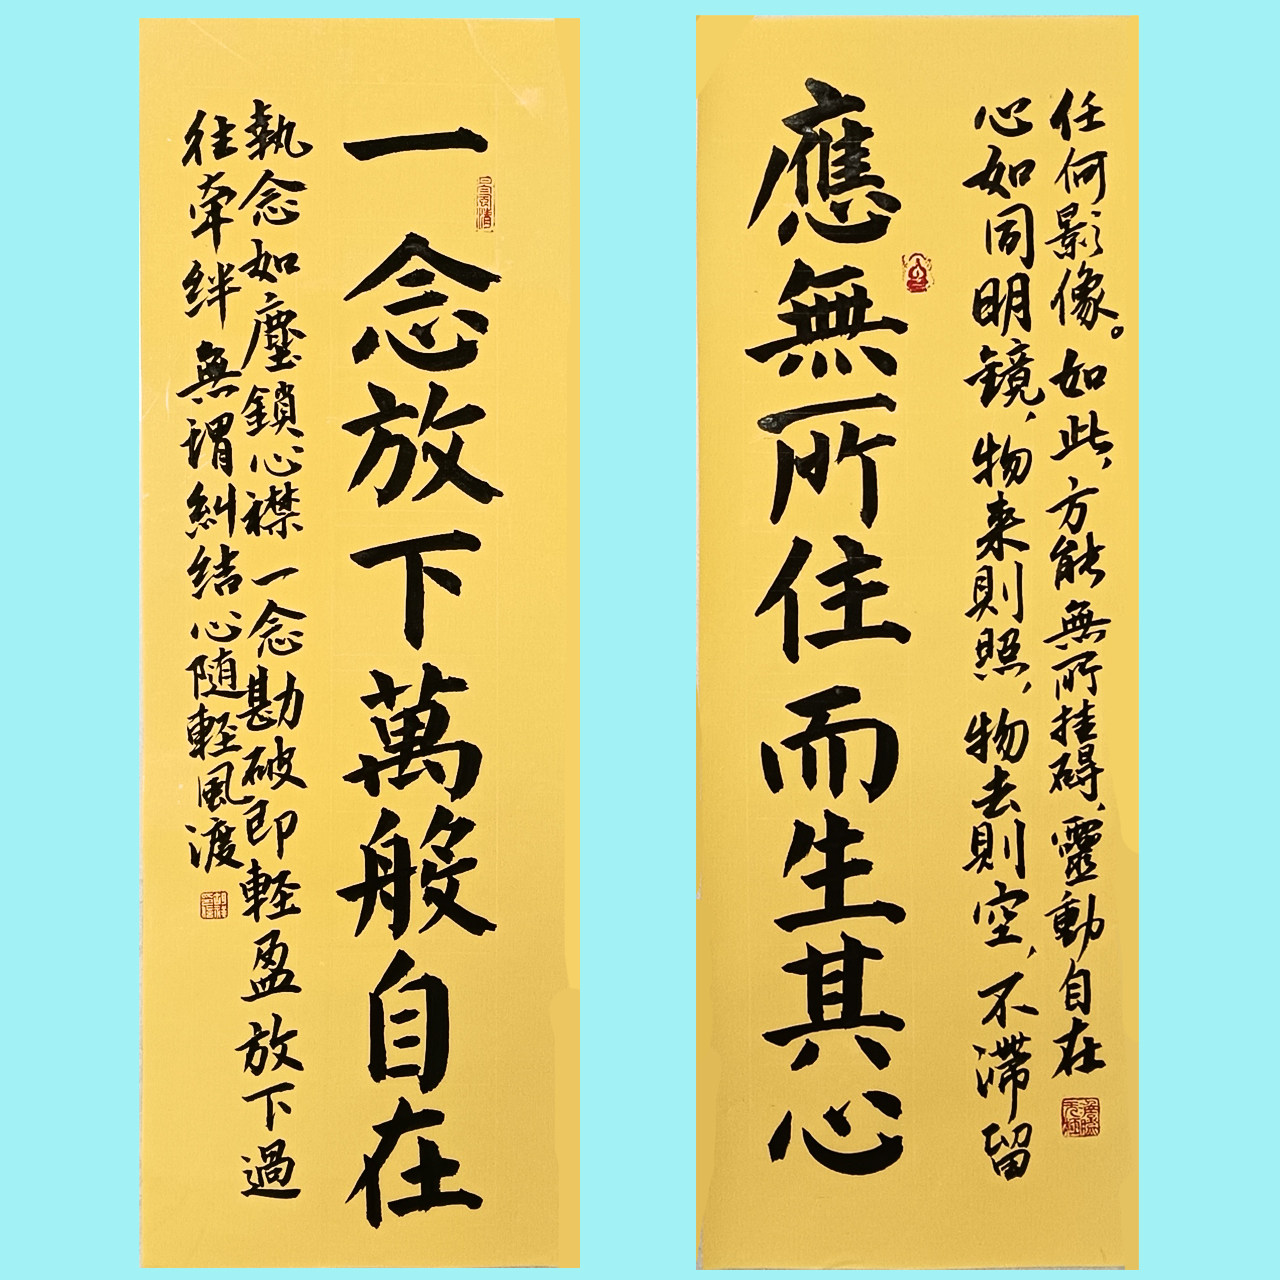 應無所住而生其心
心如同明鏡,物来則照,物去則空,不滯留
任何影像。如此,方能無所挂碍,靈動自在
一念放下萬般自在
執念如塵鎖心襟一念勘破即軽盈放下過
往牽絆無謂糾結心随軽風渡